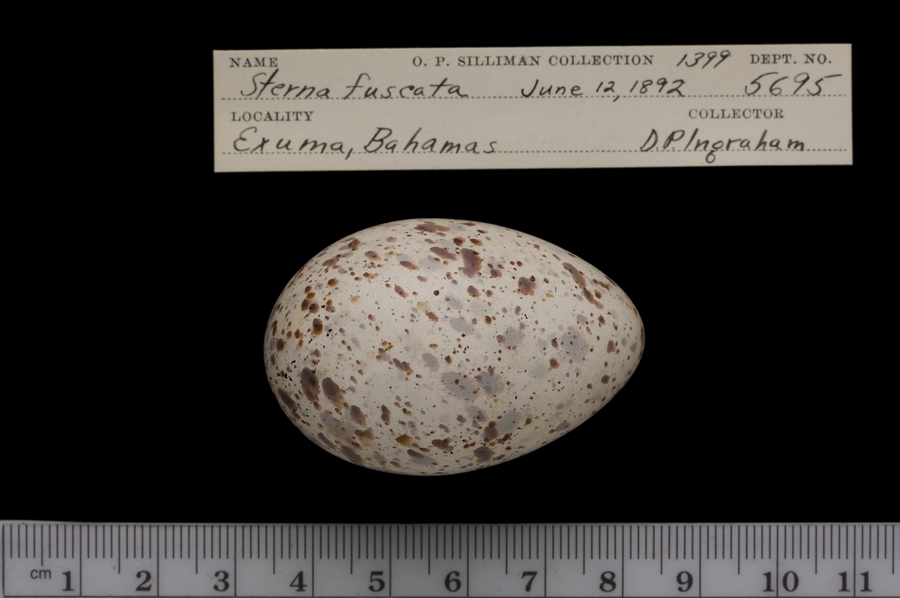 NAME O. P. SILLIMAN COLLECTION 1399 DEPT. NO.
Sterna fuscata June 12, 1892 5695
LOCALITY COLLECTOR
Exuma, Bahamas D.P. Ingraham
cm 1 2 3 4 5 6 7 8 9 10 11